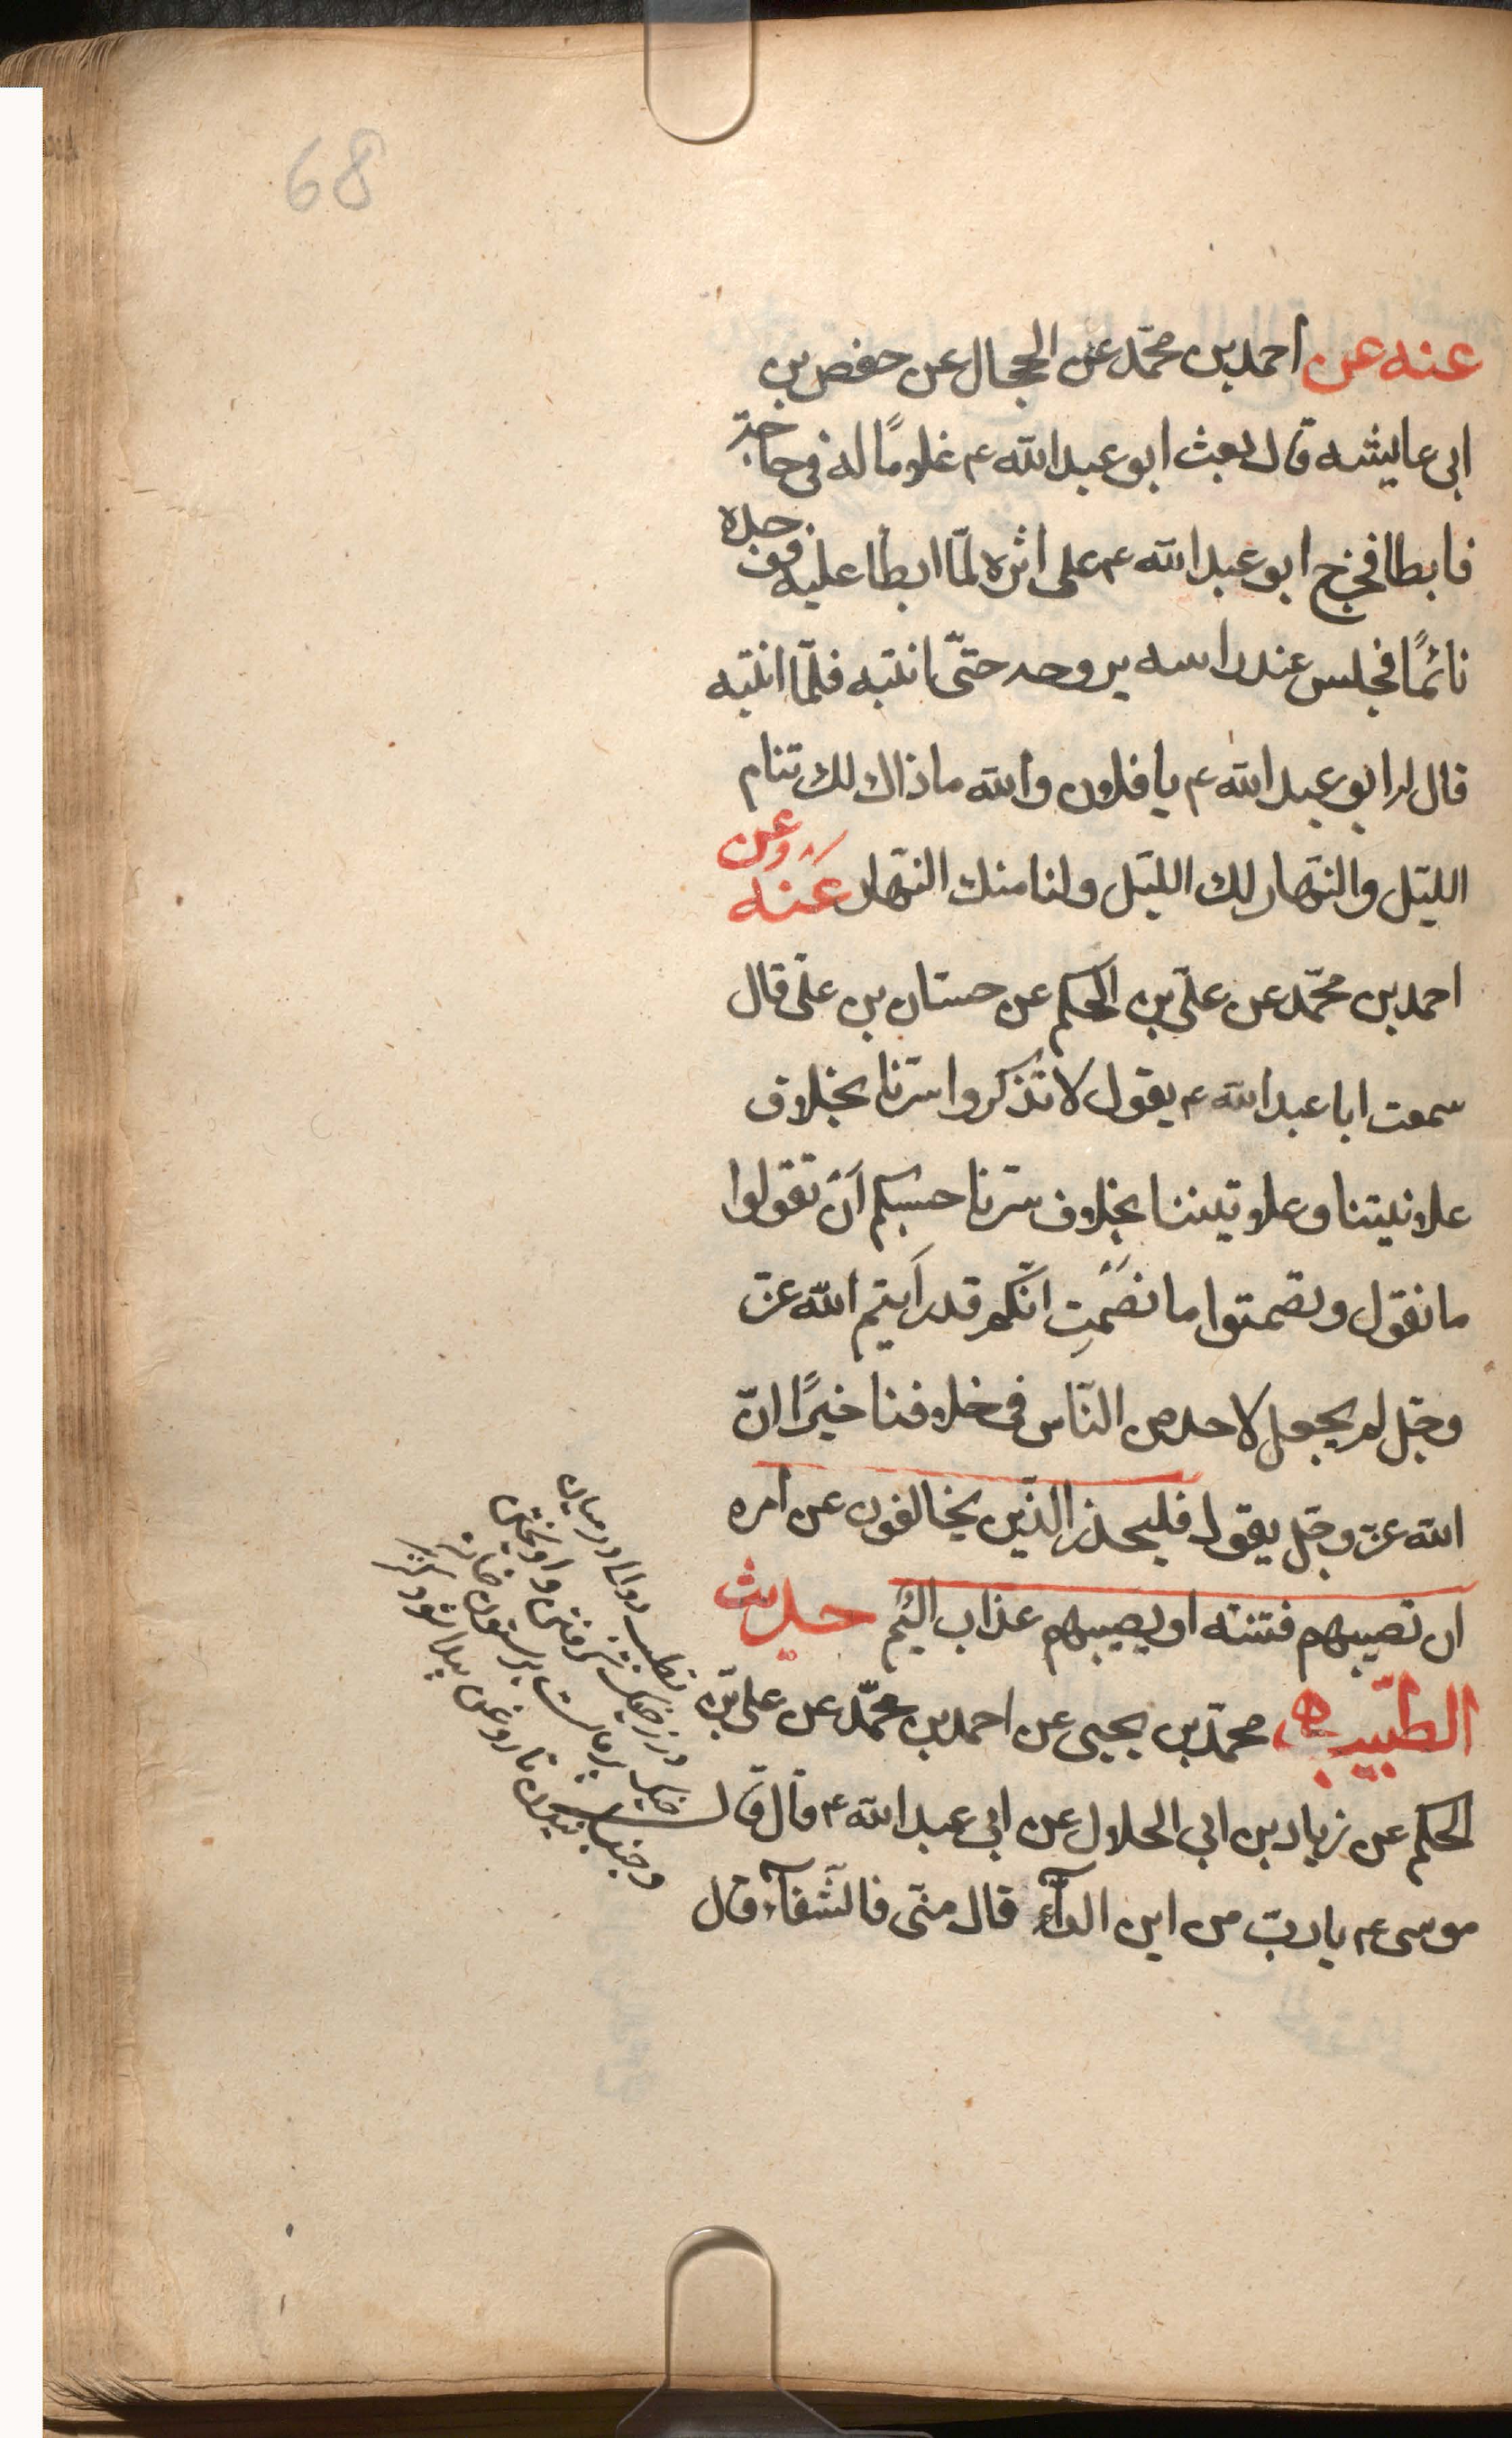 68
عنه عن احمد بن محمّد عن الحجال عن حفص بن
ابى عايشه قال بعث ابو عبدالله ع غلامًا له فى حاجة
فابطا فخرج ابو عبدالله ع على اثره لمّا ابطا عليه فوجده
نائمًا فجلس عند راسه يروحه حتّى انتبه فلمّا انتبه
قال له ابو عبدالله ع يا فلان والله ما ذاك لك تنام
الليّل والنّهار لك الليّل ولنا منك النّهار وعنه عن
احمد بن محمّد عن علىّ بن الحكم عن حسّان بن علىّ قال
سمعت ابا عبدالله ع يقول لا تذكروا سرّنا بخلاف
علانيتنا وعلانيتنا بخلاف سرّنا حسبكم اَن تقولوا
ما نقول وتصمتوا ما نصَمِت انّكم قد رايتم الله عزّ
وجلّ لم يجعل لاحد من النّاس فى خلافنا خيرًا انّ
الله عزّ وجلّ يقول فليحذر الذّين يخالفون عن امره
ان تصيبهم فتنة او يصيبهم عذاب اليُم حديث
الطّبيب محمّد بن يحيى عن احمد بن محمّد عن علىّ بن
الحكم عن زياد بن ابى الحلال عن ابى عبدالله ع قال قال
موسى ع يا ربّ من اين الدآء قال منّى فالشّفآء قال